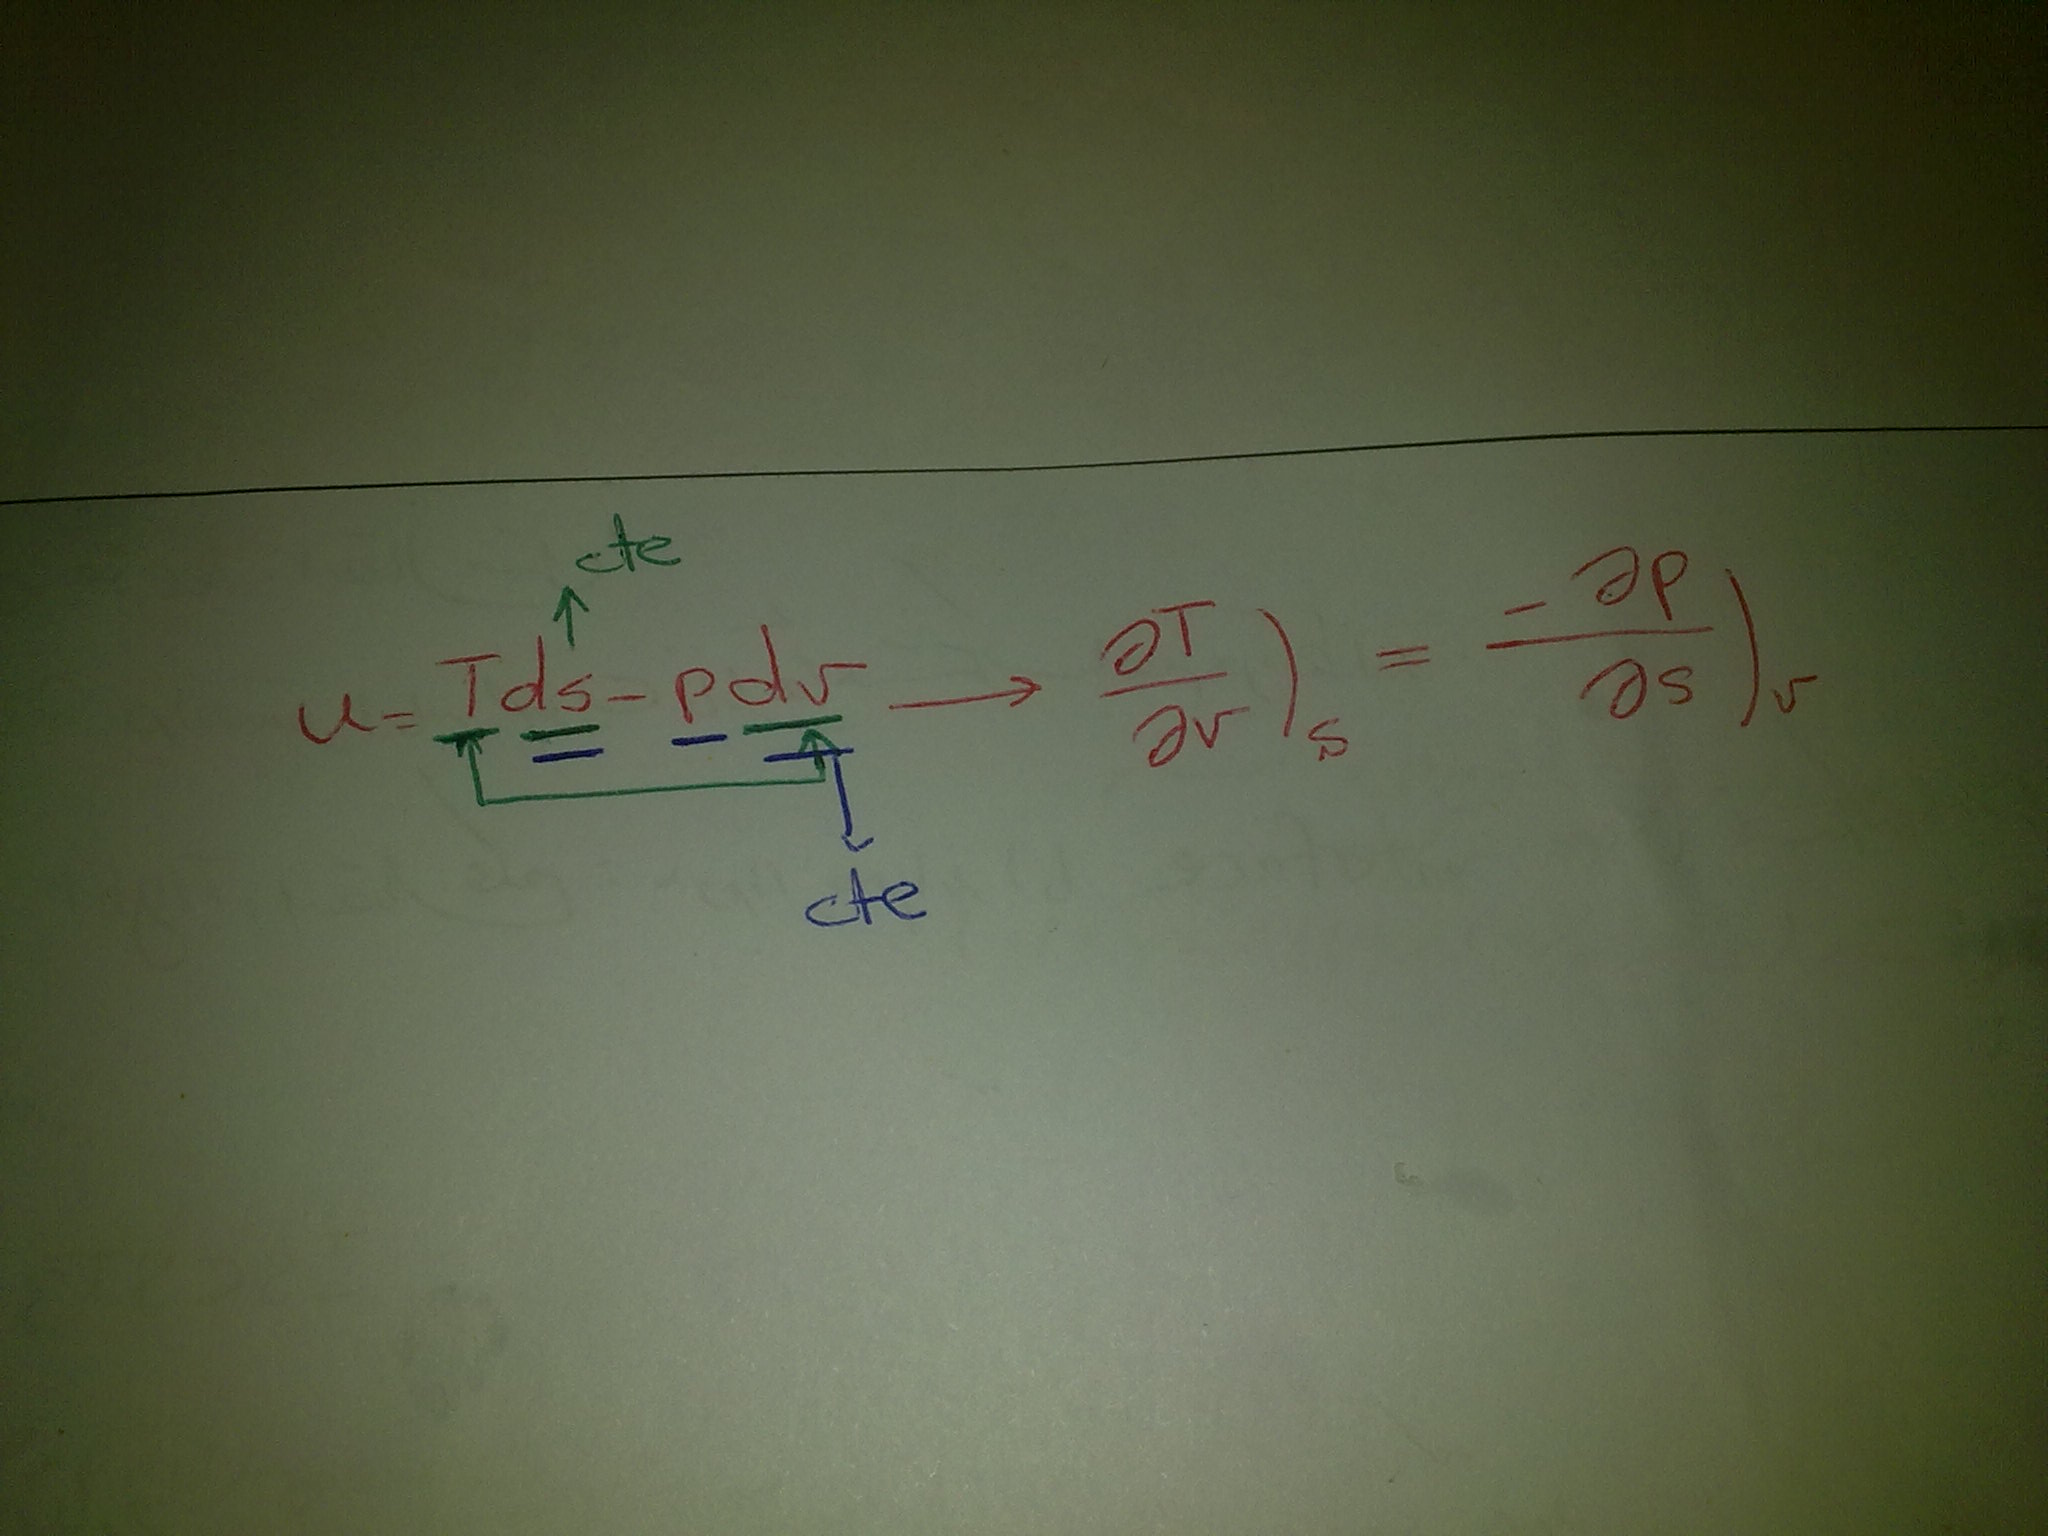 cte
u = Tds - pdv → ∂T/∂v)s = -∂p/∂s)v
cte